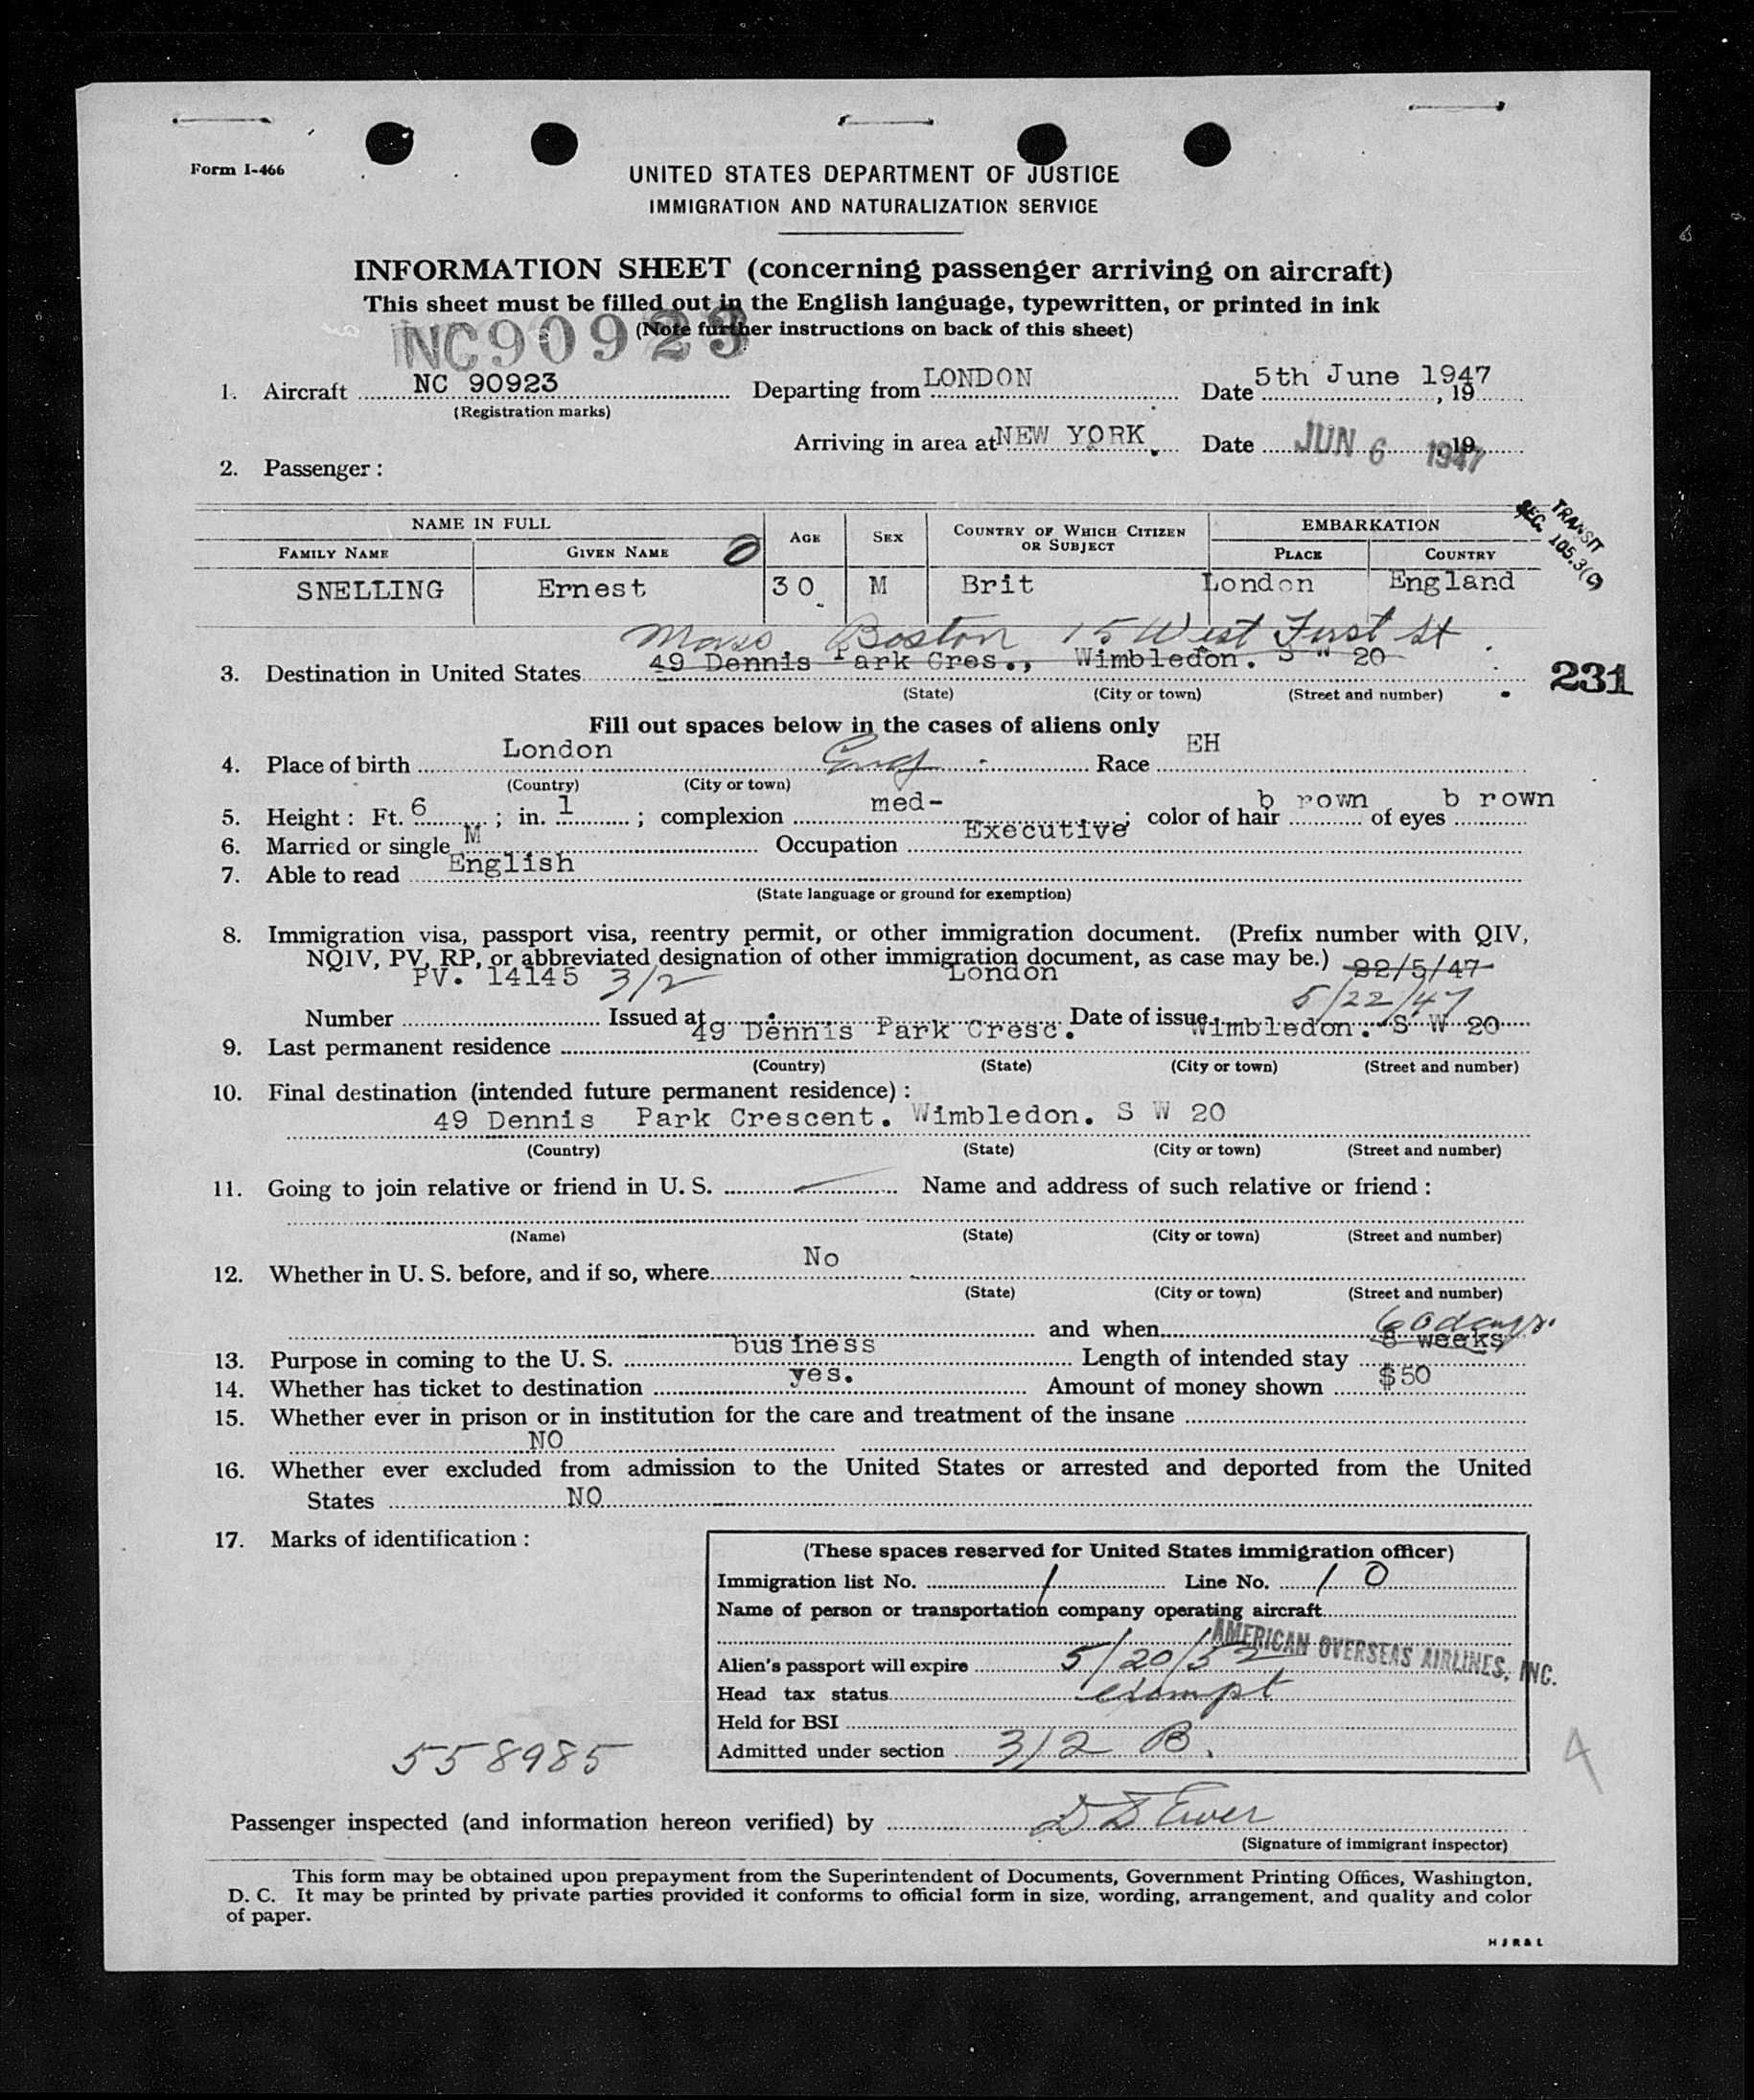 Form I-466
UNITED STATES DEPARTMENT OF JUSTICE
IMMIGRATION AND NATURALIZATION SERVICE
INFORMATION SHEET (concerning passenger arriving on aircraft)
This sheet must be filled out in the English language, typewritten, or printed in ink
(Note further instructions on back of this sheet)
NC90923
1. Aircraft NC 90923 Departing from LONDON Date 5th June 1947, 19
(Registration marks)
Arriving in area at NEW YORK. Date JUN 6 1947, 19
2. Passenger:
NAME IN FULL AGE SEX COUNTRY OF WHICH CITIZEN OR SUBJECT EMBARKATION
FAMILY NAME GIVEN NAME PLACE COUNTRY
TRANSIT
SEC. 105.3(C)
SNELLING Ernest 30 M Brit London England
Mass Boston 15 West First St
3. Destination in United States 49 Dennis Park Cres., Wimbledon. S W 20
231
(State) (City or town) (Street and number)
Fill out spaces below in the cases of aliens only
4. Place of birth London Eng Race EH
(Country) (City or town)
5. Height: Ft. 6; in. 1; complexion med-; color of hair b rown of eyes b rown
6. Married or single M Occupation Executive
7. Able to read English
(State language or ground for exemption)
8. Immigration visa, passport visa, reentry permit, or other immigration document. (Prefix number with QIV,
NQIV, PV, RP, or abbreviated designation of other immigration document, as case may be.) 22/5/47
Number PV. 14145 3/2 Issued at London Date of issue 5/22/47
9. Last permanent residence 49 Dennis Park Cresc. Wimbledon. S W 20
(Country) (State) (City or town) (Street and number)
10. Final destination (intended future permanent residence):
49 Dennis Park Crescent. Wimbledon. S W 20
(Country) (State) (City or town) (Street and number)
11. Going to join relative or friend in U. S. Name and address of such relative or friend:
(Name) (State) (City or town) (Street and number)
12. Whether in U. S. before, and if so, where No
(State) (City or town) (Street and number)
and when
60 days.
13. Purpose in coming to the U. S. business Length of intended stay 6 weeks
14. Whether has ticket to destination yes. Amount of money shown $50
15. Whether ever in prison or in institution for the care and treatment of the insane
NO
16. Whether ever excluded from admission to the United States or arrested and deported from the United
States NO
17. Marks of identification:
(These spaces reserved for United States immigration officer)
Immigration list No. 1 Line No. 10
Name of person or transportation company operating aircraft
AMERICAN OVERSEAS AIRLINES, INC.
Alien's passport will expire 5/20/52
Head tax status exempt
Held for BSI
Admitted under section 3/2 B.
558985
4
Passenger inspected (and information hereon verified) by D S Ewer
(Signature of immigrant inspector)
This form may be obtained upon prepayment from the Superintendent of Documents, Government Printing Offices, Washington,
D. C. It may be printed by private parties provided it conforms to official form in size, wording, arrangement, and quality and color
of paper.
HJR&L